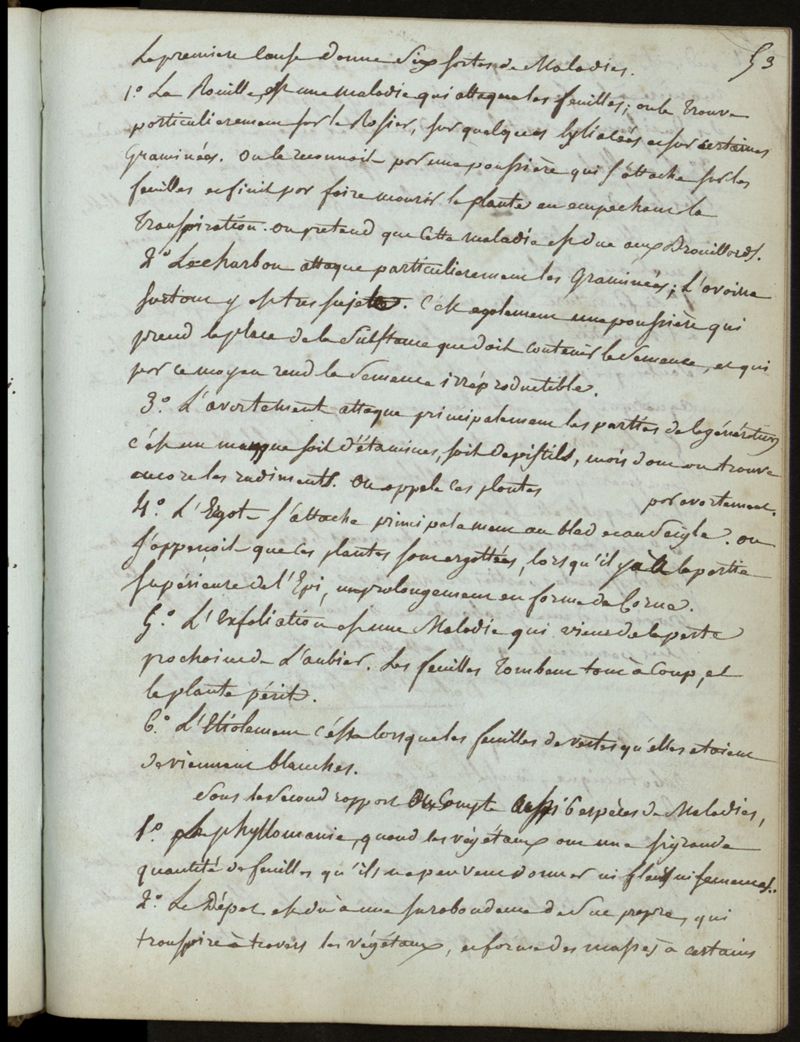 53
La premiere Cause donne Six sortes de Maladies.
1.° La Rouille, est une maladie qui attaque les feuilles; on la trouve
particulierement sur le Rosier, sur quelques lyliacées et sur certaines
Graminées. On le reconnoit par une poussière qui s'attache sur les
feuilles et finit par faire mourir la plante en empechant la
Transpiration. On pretend que Cette maladie est due aux Brouillards.
2.° Le charbon attaque particulierement les Graminées; L'avoine
surtout y est tres sujette. C'est egalement une poussière qui
prend la place de la Substance que doit contenir la Semence, et qui
par ce moyen rend la Semence irréproductible.
3.° L'avortement attaque principalement les parties de la génération
c'est un manque soit d'étamines, soit de pistils, mais dont on trouve
encore les rudiments. On appele ces plantes par avortement.
4.° L'Ergot s'attache principalement au bled et au Seigle. On
s'apperçoit que ces plantes sont ergottées, lorsqu'il y a à la partie
supérieure de l'Epi, un prolongement en forme de Corne.
5.° L'Exfoliation est une Maladie qui vient de la perte
prochaine de L'aubier. Les feuilles Tombent tout à Coup, et
la plante périt.
6.° L'Etiolement c'est lorsque les feuilles de vertes qu'elles etoient
deviennent blanches.
Sous le Second rapport On Compte aussi 6 espèces de Maladies,
1.° La phyllomanie, quand les végétaux ont une si grande
quantité de feuilles qu'ils ne peuvent donner ni fleurs ni semences.
2.° Le Dépot est dû à une surabondance de Suc propre, qui
transpire à travers les végétaux, et forme des masses à certains